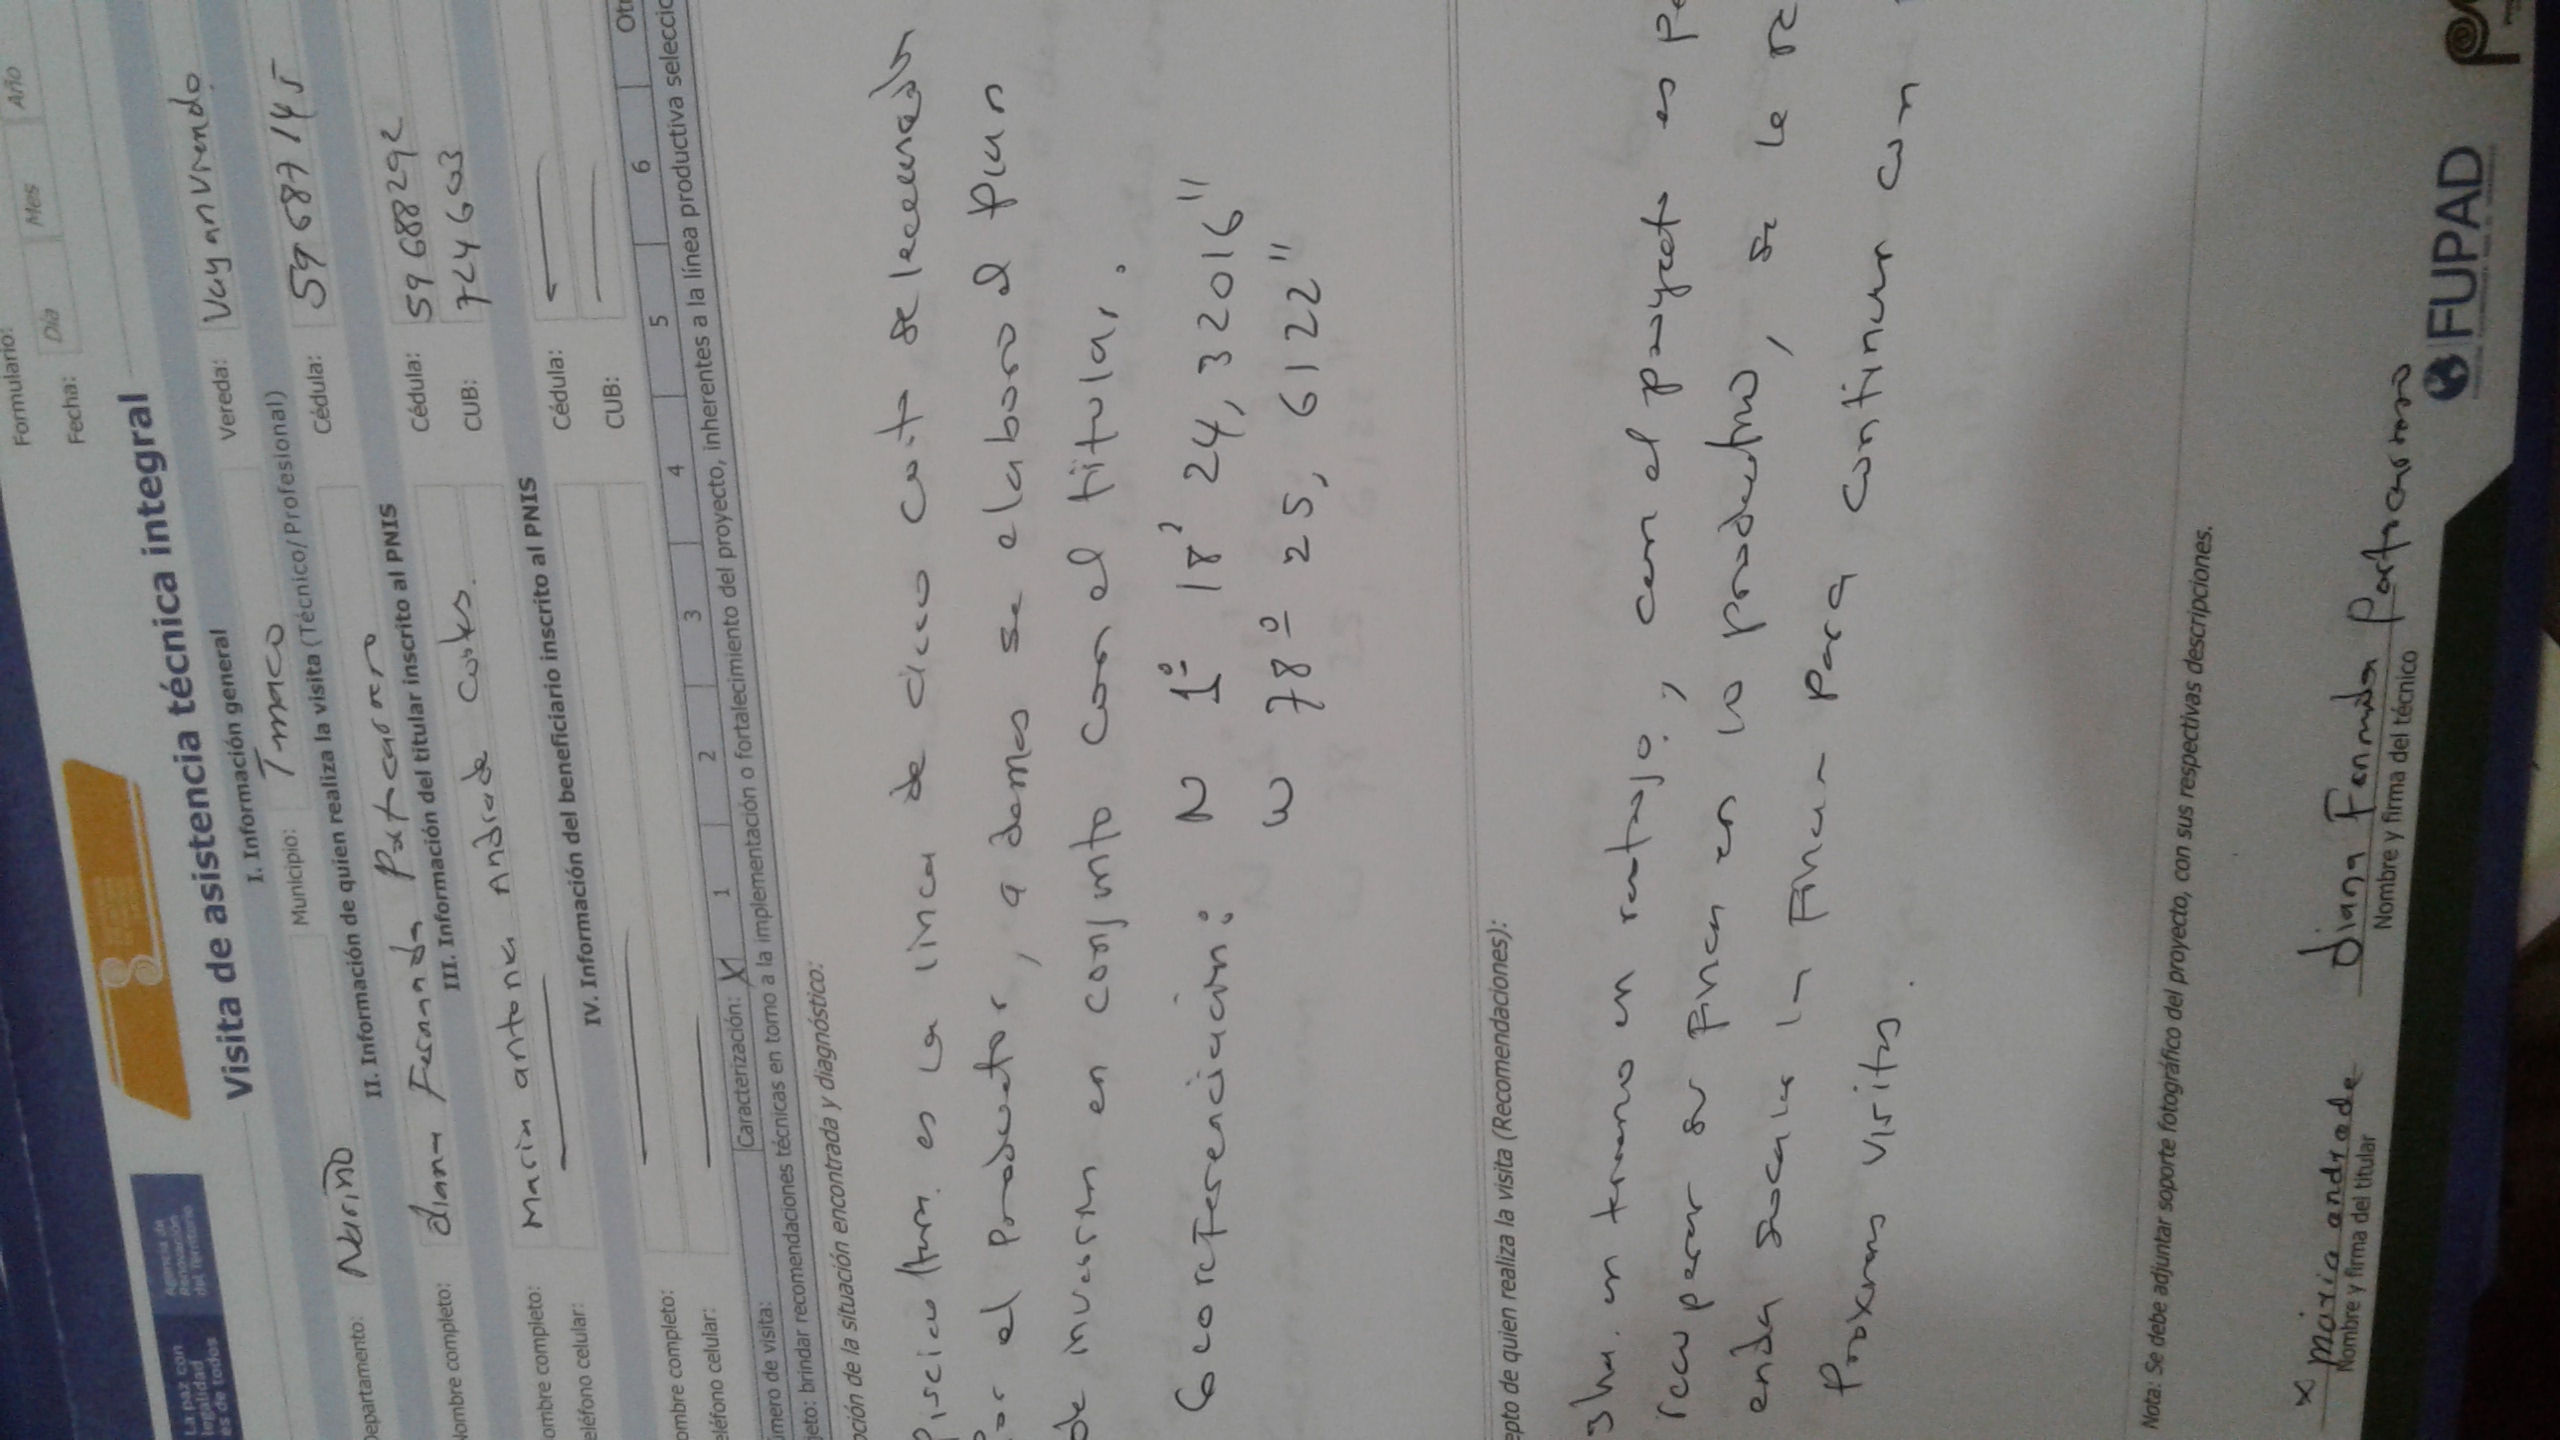 Formulario:
Fecha: Día Mes Año
La paz con legalidad es de todos
Agencia de Renovación del Territorio
Visita de asistencia técnica integral
I. Información general
epartamento: Nariño Municipio: Tmaco Vereda: Vuyanviendo
II. Información de quien realiza la visita (Técnico/Profesional)
Nombre completo: diana Fernanda Portocarrero Cédula: 59687145
III. Información del titular inscrito al PNIS
ombre completo: Maria antonia Andrade Cortes. Cédula: 59688292
eléfono celular: CUB:
IV. Información del beneficiario inscrito al PNIS
ombre completo: Cédula:
eléfono celular: CUB:
úmero de visita: Caracterización: X 1 2 3 4 5 6 Otr
jeto: brindar recomendaciones técnicas en torno a la implementación o fortalecimiento del proyecto, inherentes a la línea productiva seleccio
pción de la situación encontrada y diagnóstico:
Piscicultura es la linea de ciclo corto seleccionada
Por el Productor, a demas se elaboro el plan
de inversion en conjunto con el titular.
Georeferenciacion: N 1° 18' 24,32016"
W 78° 25, 6122"
epto de quien realiza la visita (Recomendaciones):
un terreno en rastrojo, con el proyecto es
recuperar su Finca en lo productivo, se le
enda socale la Finca Para continuar con
Proximas visitas.
Nota: Se debe adjuntar soporte fotográfico del proyecto, con sus respectivas descripciones.
x maria andrade
Nombre y firma del titular
Diana Fernanda Portocarrero
Nombre y firma del técnico
FUPAD